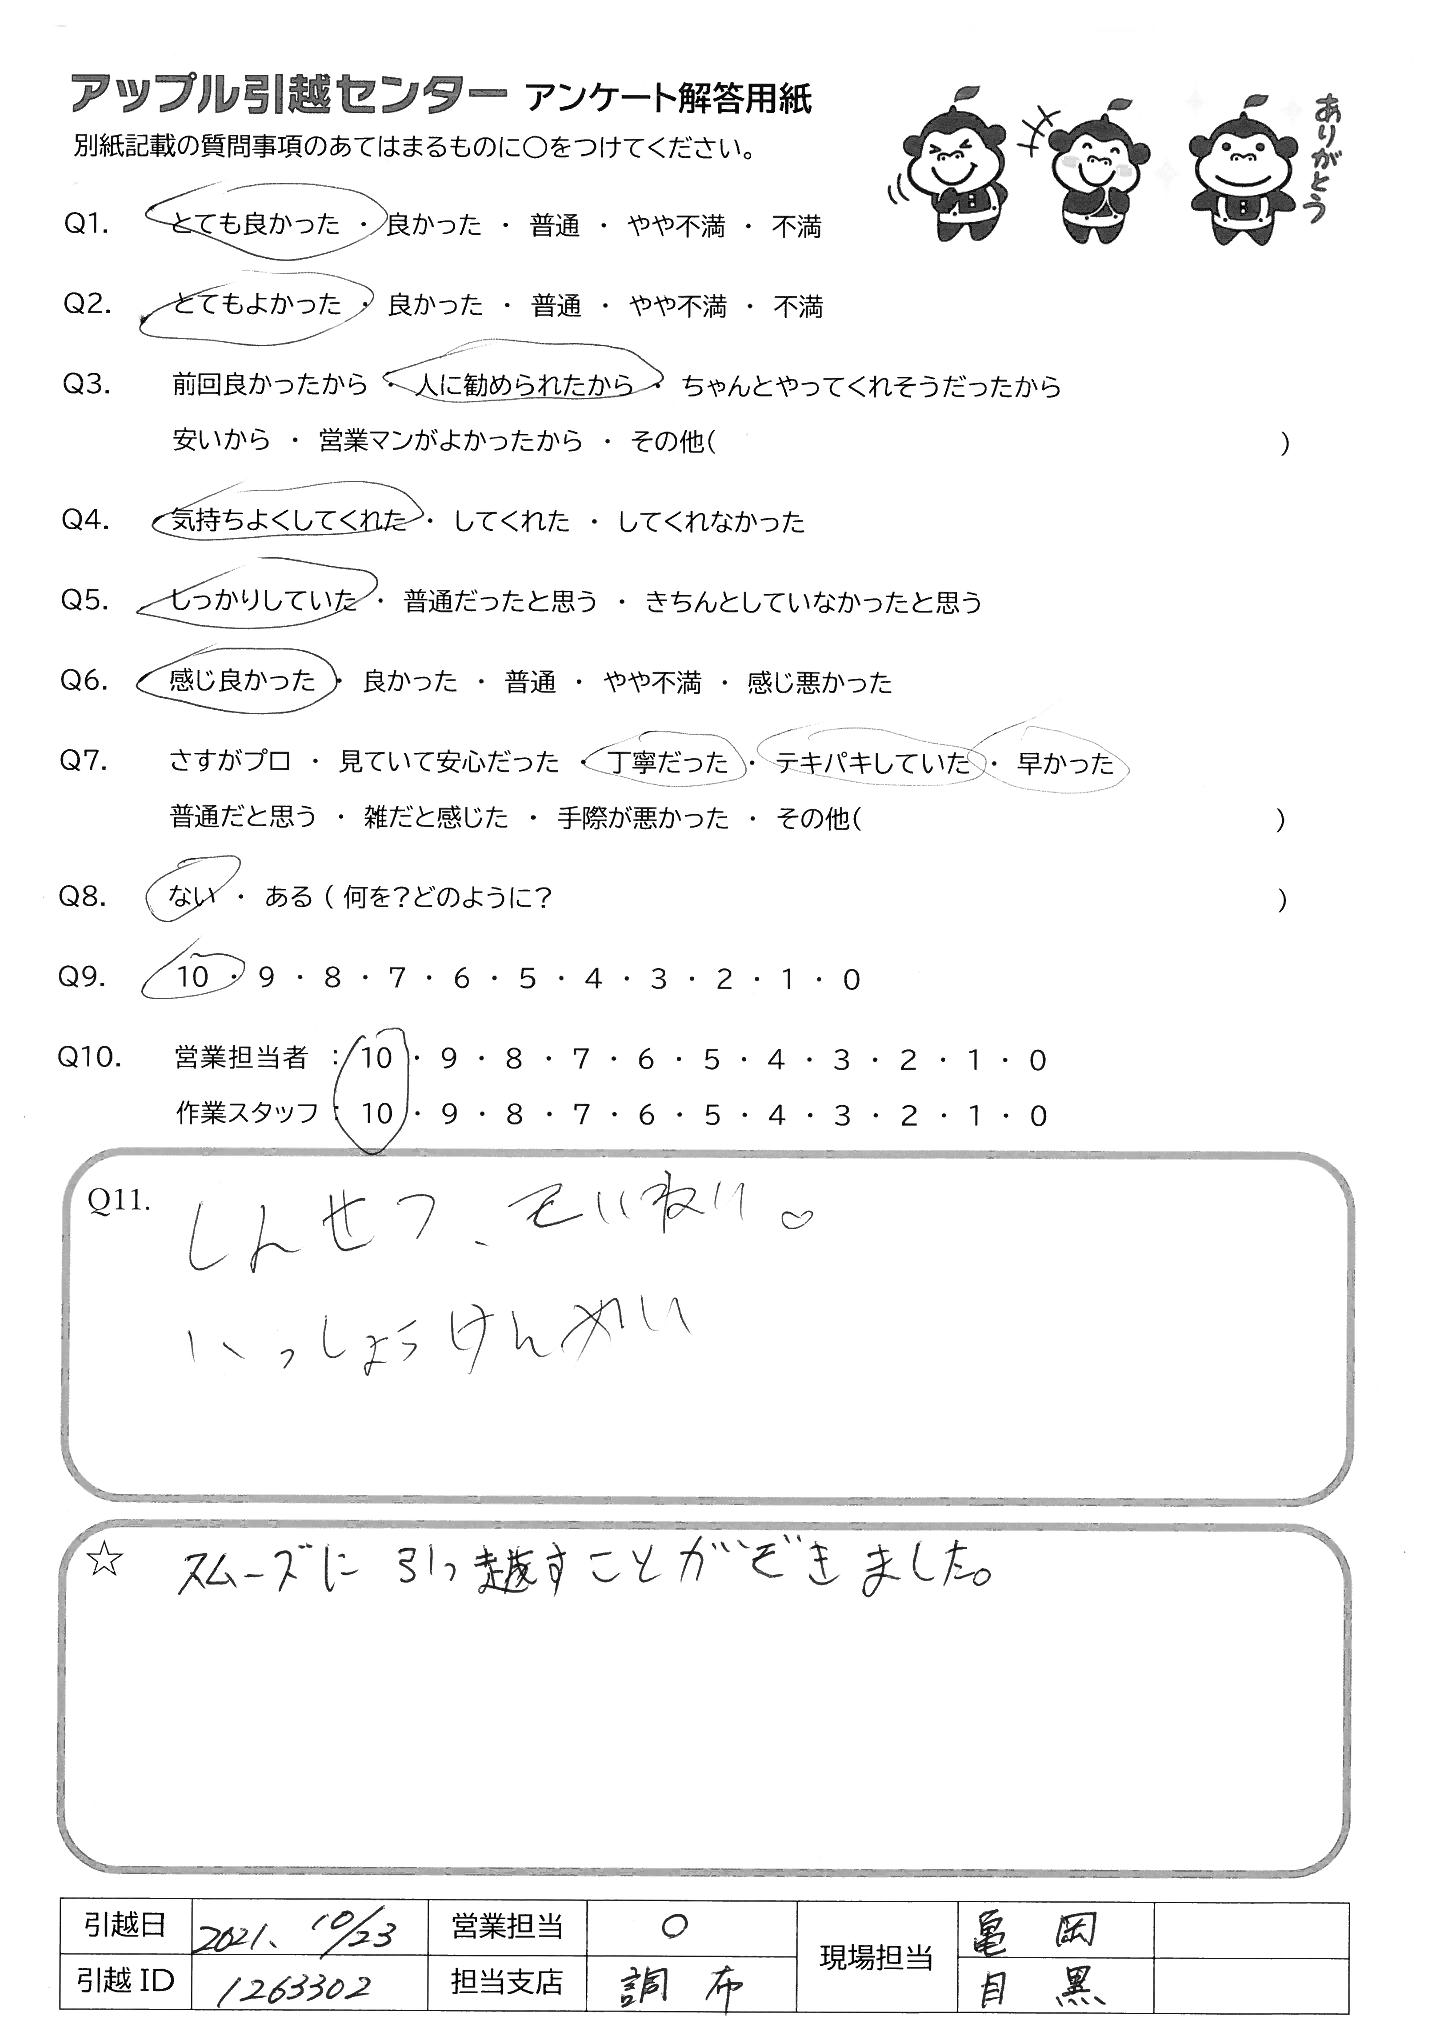 アップル引越センター アンケート解答用紙
ありがとう
別紙記載の質問事項のあてはまるものに○をつけてください。
Q1. とても良かった ・ 良かった ・ 普通 ・ やや不満 ・ 不満
Q2. とてもよかった ・ 良かった ・ 普通 ・ やや不満 ・ 不満
Q3. 前回良かったから ・ 人に勧められたから ・ ちゃんとやってくれそうだったから
安いから ・ 営業マンがよかったから ・ その他( )
Q4. 気持ちよくしてくれた ・ してくれた ・ してくれなかった
Q5. しっかりしていた ・ 普通だったと思う ・ きちんとしていなかったと思う
Q6. 感じ良かった ・ 良かった ・ 普通 ・ やや不満 ・ 感じ悪かった
Q7. さすがプロ ・ 見ていて安心だった ・ 丁寧だった ・ テキパキしていた ・ 早かった
普通だと思う ・ 雑だと感じた ・ 手際が悪かった ・ その他( )
Q8. ない ・ ある ( 何を?どのように? )
Q9. 10 ・ 9 ・ 8 ・ 7 ・ 6 ・ 5 ・ 4 ・ 3 ・ 2 ・ 1 ・ 0
Q10. 営業担当者 : 10 ・ 9 ・ 8 ・ 7 ・ 6 ・ 5 ・ 4 ・ 3 ・ 2 ・ 1 ・ 0
作業スタッフ : 10 ・ 9 ・ 8 ・ 7 ・ 6 ・ 5 ・ 4 ・ 3 ・ 2 ・ 1 ・ 0
Q11. しんせつ、ていねい。♡
いっしょうけんめい
☆ スムーズに引っ越すことができました。
引越日 2021、10/23 営業担当 ○ 現場担当 亀岡
引越 ID 1263302 担当支店 調布 目黒